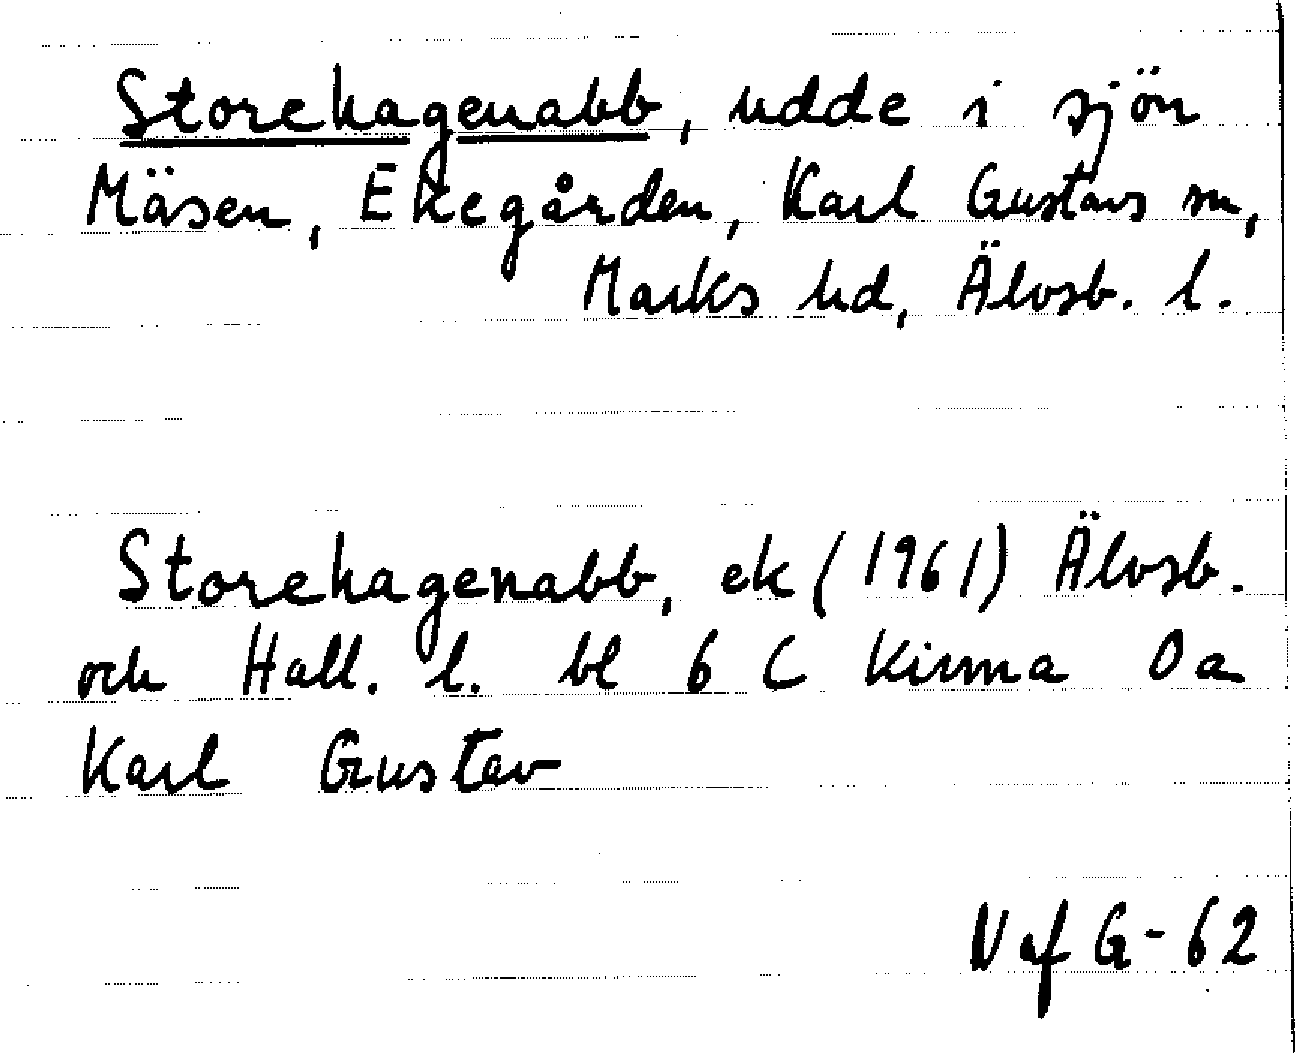 Storehagenabb, udde i sjön
Mäsen, Ekegården, Karl Gustavs sn,
Marks hd, Älvsb. l.
Storehagenabb, ek (1961) Älvsb.
och Hall. l. bl 6 C Kinna 0a
Karl Gustav
V af G-62